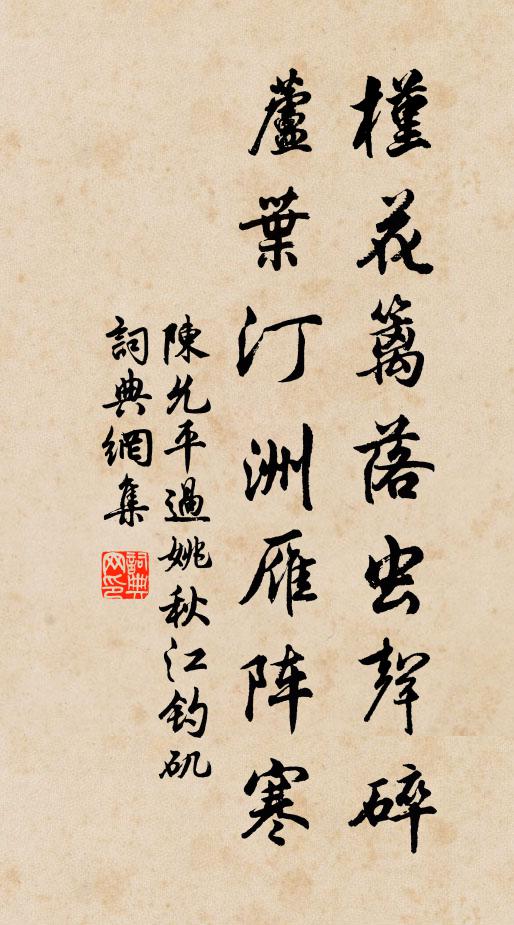 槿花籬落虫聲碎
蘆葉汀洲雁阵寒
陳允平過姚秋江釣矶
詞典網集
詞典网印